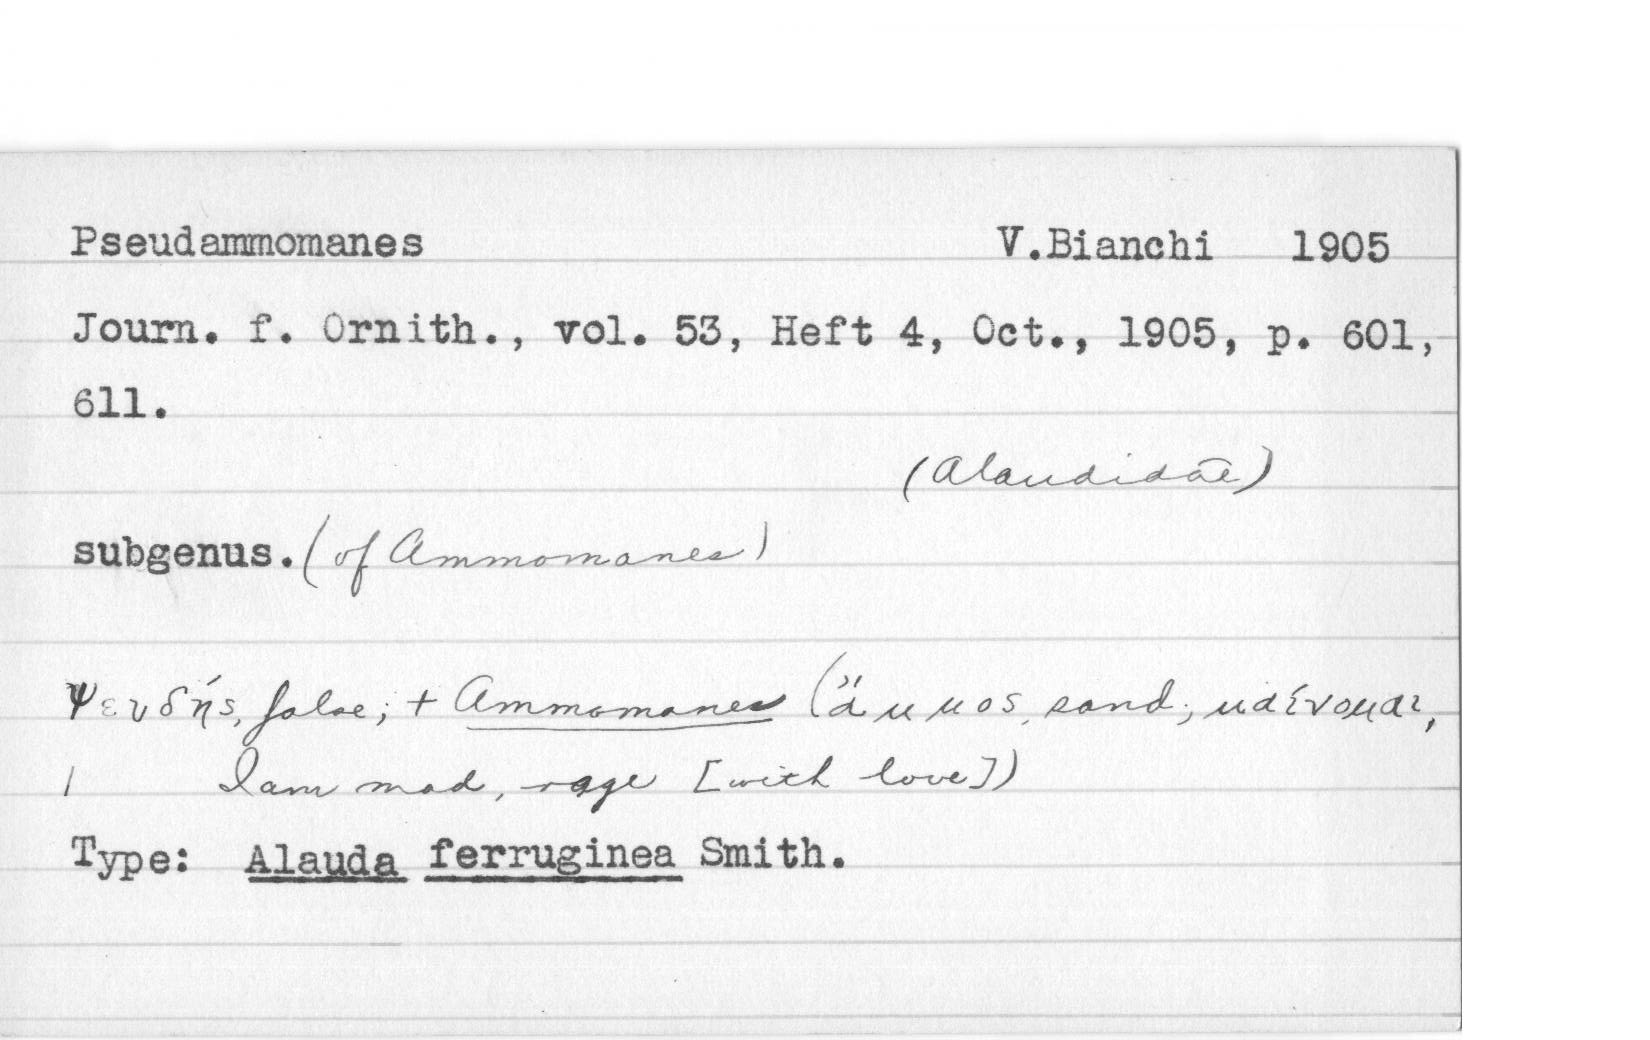 Pseudammomanes V.Bianchi 1905
Journ. f. Ornith., vol. 53, Heft 4, Oct., 1905, p. 601,
611.
(Alaudidae)
subgenus. (of Ammomanes)
ψευδής, false; + Ammomanes (ἄμμος, sand; μαίνομαι,
I am mad, rage [with love])
Type: Alauda ferruginea Smith.